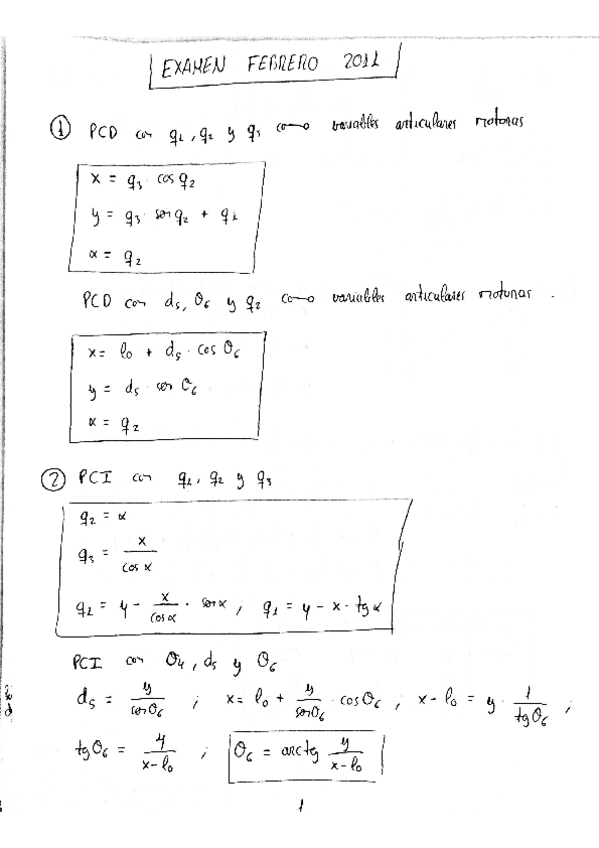 EXAMEN FEBRERO 2011
① PCD con q₁, q₂ y q₃ como variables articulares motoras
x = q₃ · cos q₂
y = q₃ · sen q₂ + q₁
α = q₂
PCD con d₅, θ₆ y q₂ como variables articulares motoras.
x = l₀ + d₅ · cos θ₆
y = d₅ · sen θ₆
α = q₂
② PCI con q₁, q₂ y q₃
q₂ = α
q₃ = x / cos α
q₁ = y - x / cos α · sen α ; q₁ = y - x · tg α
PCI con θ₄, d₅ y θ₆
d₅ = y / sen θ₆ ; x = l₀ + y / sen θ₆ · cos θ₆ ; x - l₀ = y · 1 / tg θ₆ ;
tg θ₆ = y / x - l₀ ; θ₆ = arctg y / x - l₀
1